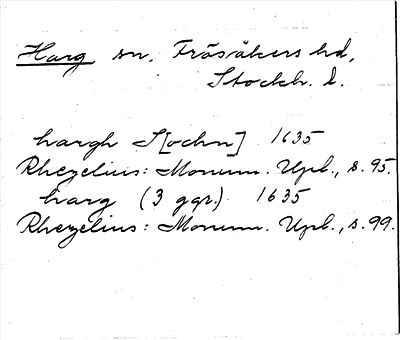 Harg sn. Frösåkers hd,
Stockh. l.
hargh S[ochn] 1635
Rhezelius: Monum. Upl., s. 95.
harg (3 ggr.) 1635
Rhezelius: Monum. Upl., s. 99.